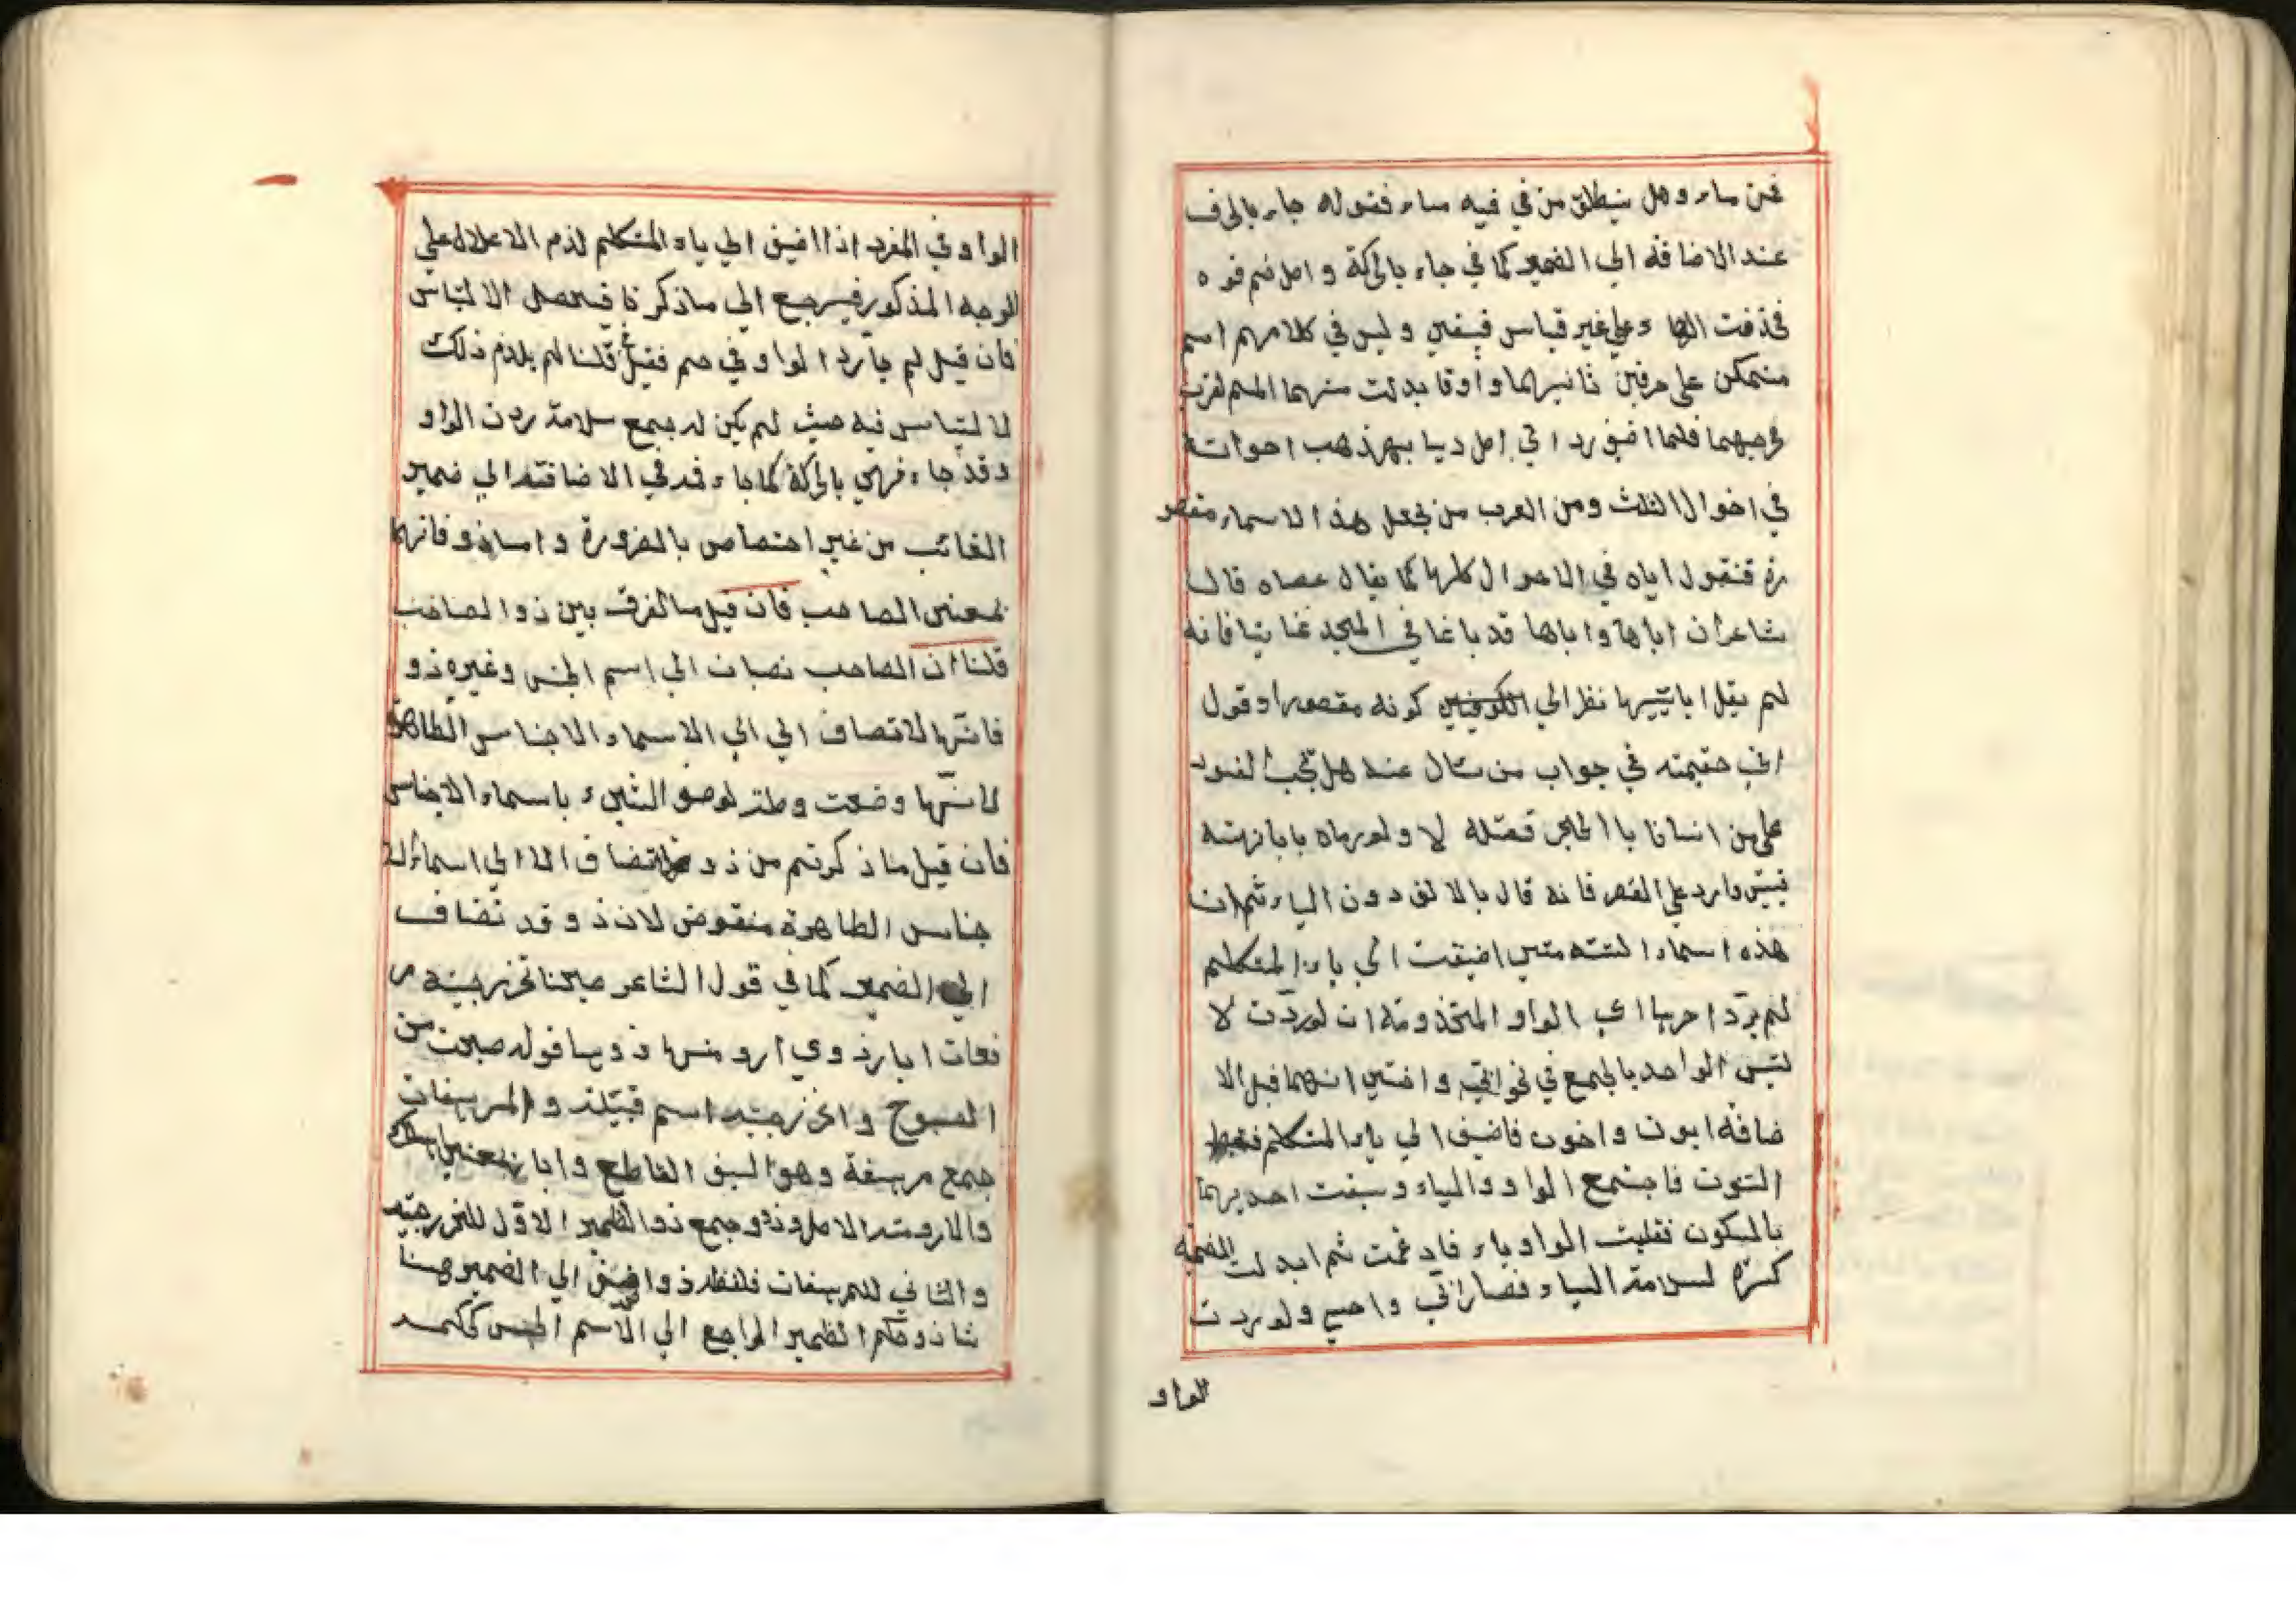 عن ماء وهل ينطلق من في فيه ماء فقوله جاء بالحرف
عند الاضافة الي الضمير كما في جاء بالحركة واصل فم فوه
فحذفت الهاء علي غير قياس فبقي وليس في كلامهم اسم
متمكن علي حرفين ثانيهما واو فابدلت منهما الميم لقرب
مخرجهما فلما اضيف رد الي اصل
في احوال الثلث ومن العرب من يجعل هذا الاسماء مقصو
رة فنقول اباه في الاحوال كلها كما يقال عصاه قال
شاعر ان اباها وابا اباها قد بلغا في المجد غايتا فانه
لم يقل ابا ابيها نظر الي كونه مقصورا وقول
ابي حنيفته في جواب من سال عنه هل تجب القود
علي من انسانا با الحجر فقتله لا ولو رماه بابا
قبيس وارد علي القصر فانه قال بالالف دون الياء ثم ان
هذه اسماء الستة متي اضيفت الي ياء المتكلم
لم يرد اخرها اي الواو المحذوفة ان لو ردت لا
لتبس الواحد بالجمع في نحو ابي واختي انهما قبل الا
ضافة ابون واخون فاضيف الي ياء المتكلم فسقط
النون فاجتمع الواو والياء وسبقت احديهما
بالسكون فقلبت الواو ياء فادغمت ثم ابدلت الضمة
كسرة لسلامة الياء فصار ابي واخي ولو ردت
الواو
الواو في المفرد اذا اضيف الي ياء المتكلم لزم الاعلال علي
الوجه المذكور فيرجع الي ما ذكرنا فيحصل الالتباس
فان قيل لم جاء رد الواو في فم فقيل قلنا لم يلزم ذلك
لالتباس فيه حيث لم يكن له جمع سلامة ردن الواو
وقد جاء فهي بالحركة كما جاء في الاضافته الي ضمير
الغائب من غير اختصاص بالضرورة واما ذو فانها
بمعني الصاحب فان قيل ما الفرق بين ذو الصاحب
قلنا ان الصاحب نصاف الي اسم الجنس وغيره ذو
فانها لا تضاف الي الي الاسماء الاجناس الظاهرة
لانها وضعت وصلة لوصف الشيء باسماء الاجناس
فان قيل ما ذكرتم من ذو لا تضاف الا الي اسماء الا
جناس الظاهرة منقوض لان ذو قد تضاف
الي الضمير كما في قول الشاعر صبحنا الخزرجية مر
هفات ابار ذوي ارومتها ذووها قوله صبحت من
الصبوح والخزرجية اسم قبيلة والمرهفات
جمع مرهفة وهو السيف القاطع وابا بمعني اهلك
والارومة الاصل وذوو جمع ذو الضمير الاول للخزرجية
والثاني للمرهفات فلفظ ذو اضيف الي الضمير وهنا
شاذ وحكم الضمير الراجع الي الاسم الجنس كحكمه